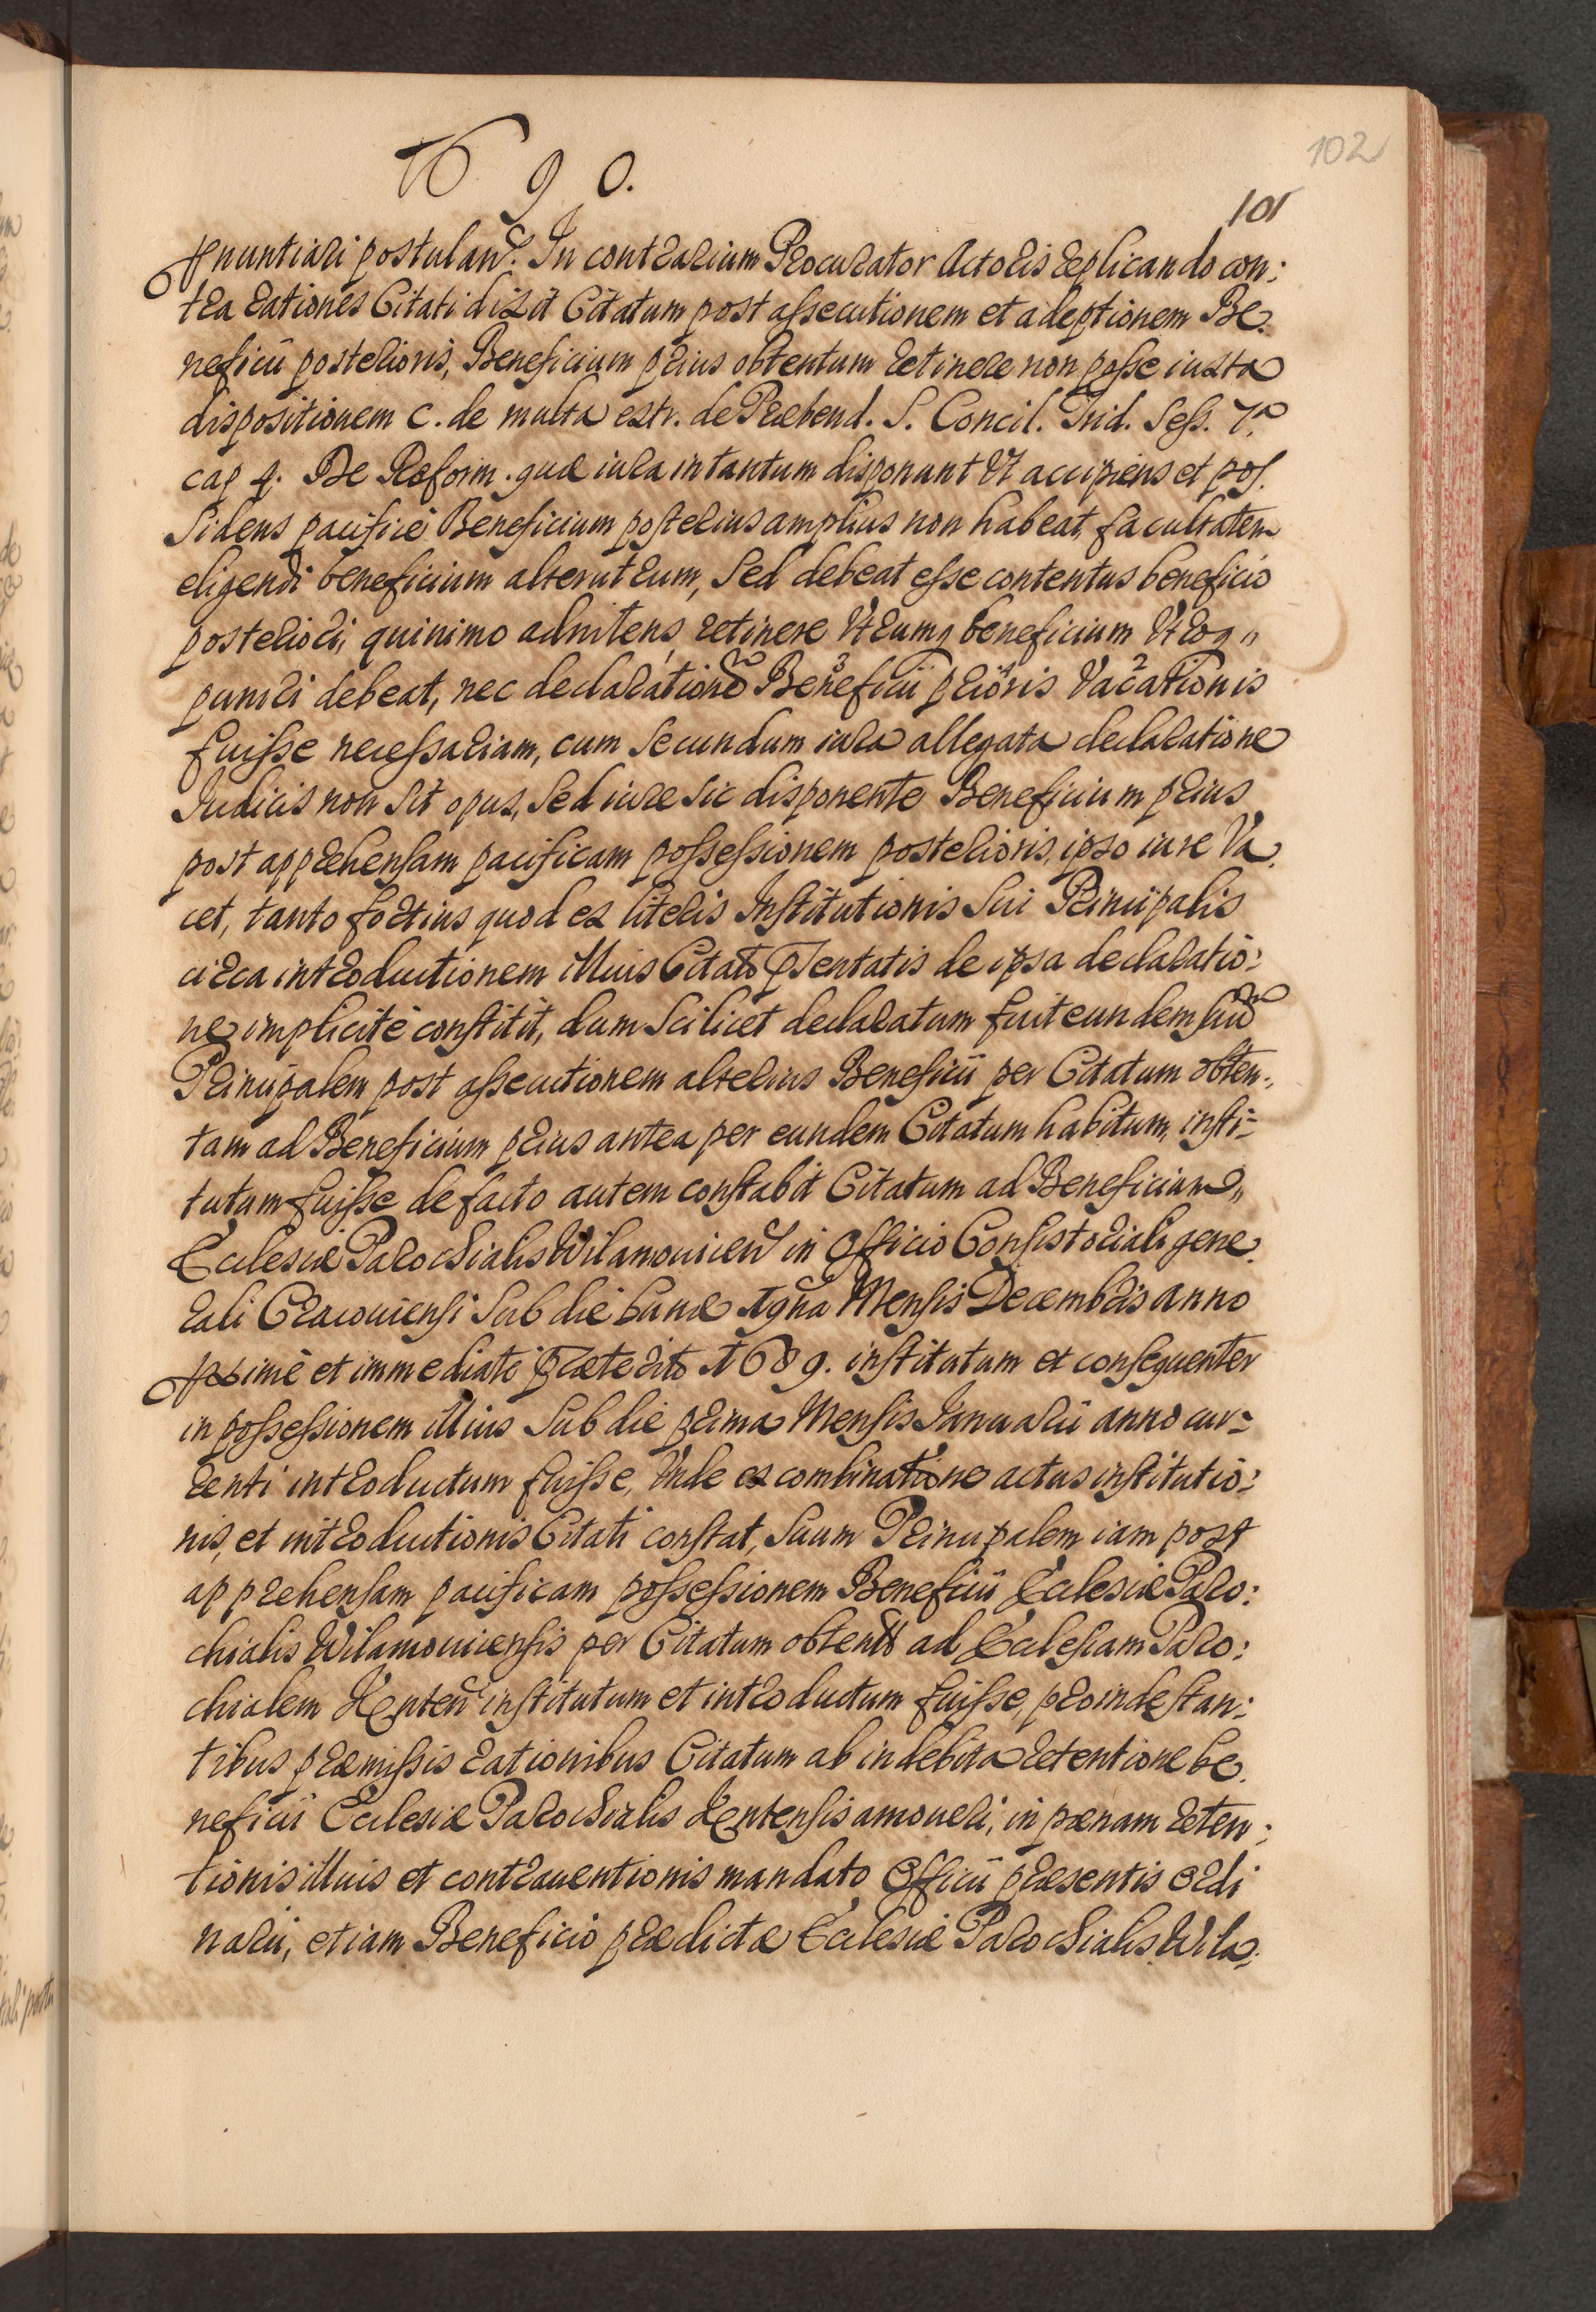 102
1690.
101
ꝓnuntiari postulan̄. In contrarium Procurator Actoris replicando con:
tra rationes Citati dixit Citatum post assecutionem et adeptionem Be.
neficii posterioris, Beneficium prius obtentum retinere non posse iuxta
dispositionem C. de multa extr. de Praebend. S. Concil. Trid. Sess. 7.a
cap 4. De Reform. quae iura in tantum disponunt Vt accipiens et pos.
sidens pacificè Beneficium posterius amplius non habeat facultatem
eligendi beneficium alterutrum, sed debeat esse contentus beneficio
posteriori, quinimo adnitens, retinere Vtrumq beneficium Vtroq"
puniri debeat, nec declarationē Beneficii prioris Vacationis
fuisse necessariam, cum secundum iura allegata declaratione
Iudicis non sit opus, sed iure sic disponente Beneficium prius
post apprehensam pacificam possessionem posterioris, ipso iure Va.
cet, tanto fortius quod ex literis Institutionis sui Principalis
circa introductionem illius Citato pꝛsentatis de ipsa declaratio:
ne implicitè constitit, dum scilicet declaratum fuit eundem suū
Principalem post assecutionem alterius Beneficii per Citatum obten:,
tam ad Beneficium prius antea per eundem Citatum habitum, insti:
tutum fuisse de facto autem constabit Citatum ad Beneficium"
Ecclesiae Parochialis Wilamovicen̄ in Officio Consistoriali gene.
rali Cracoviensi sub die Lunae 19na Mensis Decembris anno
ꝓxime et immediatè praeterito 1689. institutum et consequenter
in possessionem illius sub die prima Mensis Ianuarii anno cur:
renti introductum fuisse, Vnde ex combinatione actus institutio:
nis, et introductionis Citati constat, suum Principalem iam post
apprehensam pacificam possessionem Beneficii Ecclesiae Paro:
chialis Wilamoviciensis per Citatum obtent̄ ad Ecclesiam Paro:
chialem Kenten̄ institutum et introductum fuisse, proinde stan:
tibus praemissis rationibus Citatum ab indebita retentione be.
neficii Ecclesiae Parochialis Kentensis amoveri, in paenam reten:
tionis illius et contraventionis mandato Officii praesentis ordi
narii, etiam Beneficio praedictae Ecclesiae Parochialis Wila: